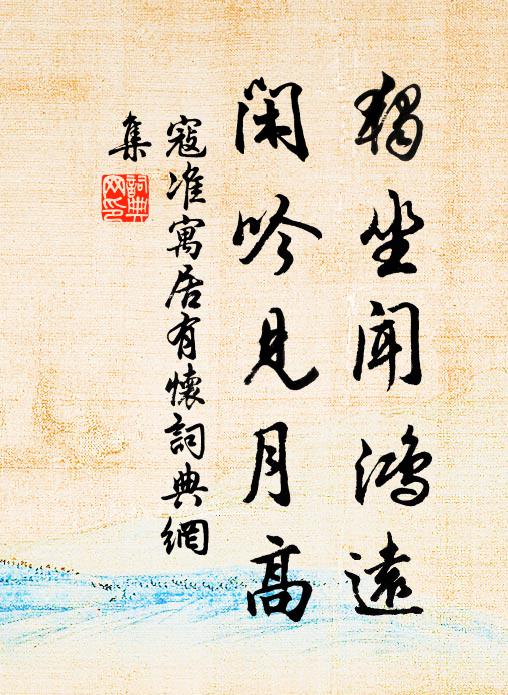 獨坐聞鴻遠
閑吟見月高
寇准寓居有懷詞典網
集
詞典
网印